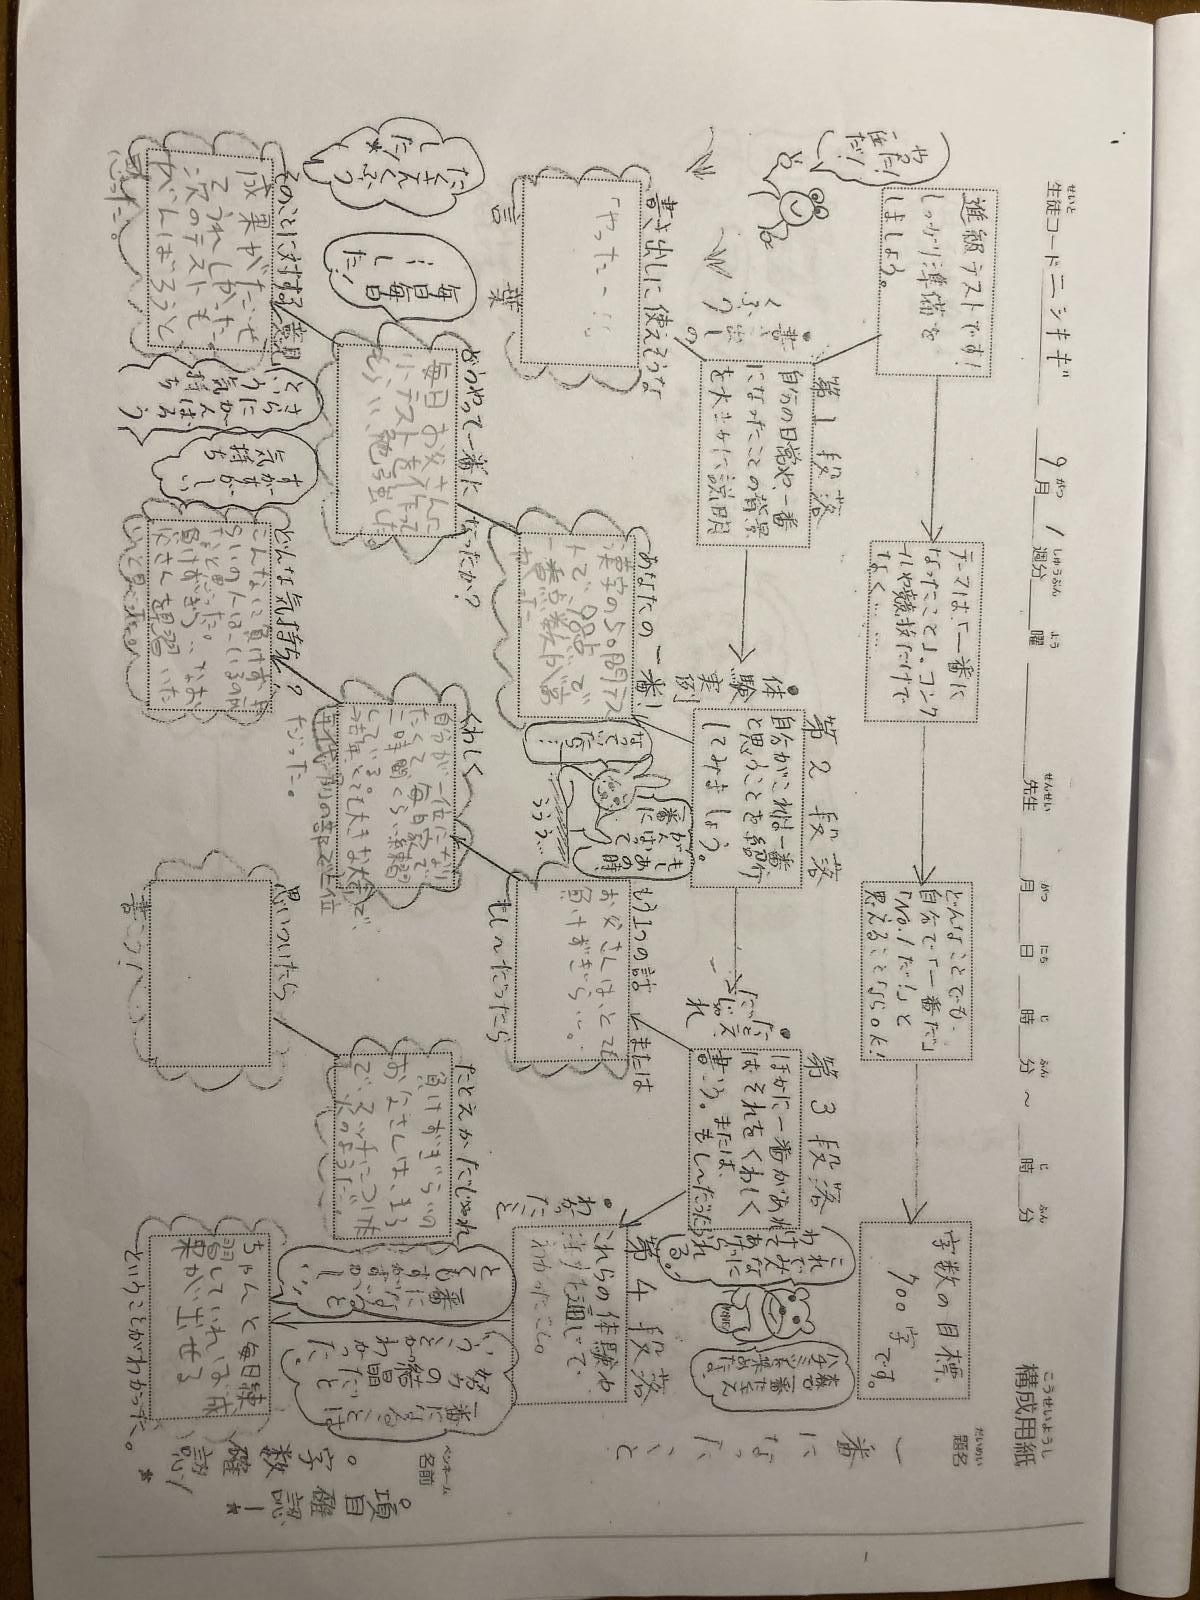 構成用紙
題名 一番になったこと
名前
生徒コード ニシキギ 9月 1週分 曜 先生 月 日 時 分 〜 時 分
進級テストです！
しっかり準備を
しましょう。
テーマは、「一番に
なったこと」。コンク
ールや競技だけで
なく……
どんなことでも、
自分で「一番だ」
「No.1だ！」と
思えることならok！
字数の目標、
700字
です。
やっ
注だ！
第1段落
自分の日常や、一番
になったことの背景
を大まかに説明
書き出しの
くふう
第2段落
自分がこれは一番
と思うことを紹介
してみましょう。
体験実例
第3段落
ほかに一番があれ
ばそれをくわしく
書こう。または、
もし〜だったら
たとえ
だじゃれ
第4段落
これらの体験や
通して、
わかったこと
わかったこと
書き出しに使えそうな
言葉
「やったー！」
あなたの一番！
漢字の50問テス
トで、 点で
一番点数が高
かった
なって
一番に
がんばる
うううう…
もう1つの話 または
もし〜だったら
お父さんは、とても
負けずぎらい。
どうやって一番になったか？
毎日お父さんに
小テストを作って
もらい、勉強した。
毎日毎日
…し
た！
たくさんくふう
した
くわしく
自分が一位になり
たくて毎日家で
二時間くらい練習
している。
去年、とても大きな大会で、
年代別の部で二位
だった。
たとえかだじゃれ
負けずぎらいの
お父さんは、まる
で、スッチについた
火のようだ。
そのことに対する意見
成果がだせ
てうれしかった。
次のテストも
がんばろうと
思った。
さらに
がんばろう
という気持ち
すがすがしい
気持ち
どんな気持ち？
こんなに負けずぎ
らいの人は、いるのか
なと思った。
負けずぎらいなお
父さんを見習いた
いと思った。
思いついたら
書こう！
ちゃんと毎日練
習していれば、成
果が出せる
ということがわかった。
一番に
なると
とても
すがすがし
い
一番になることは
努力の結晶
だと
いうことがわかった
これで
みんなに
われる。
森で一番
ハチミツ
たくさん
。項目確認！
。字数確認！